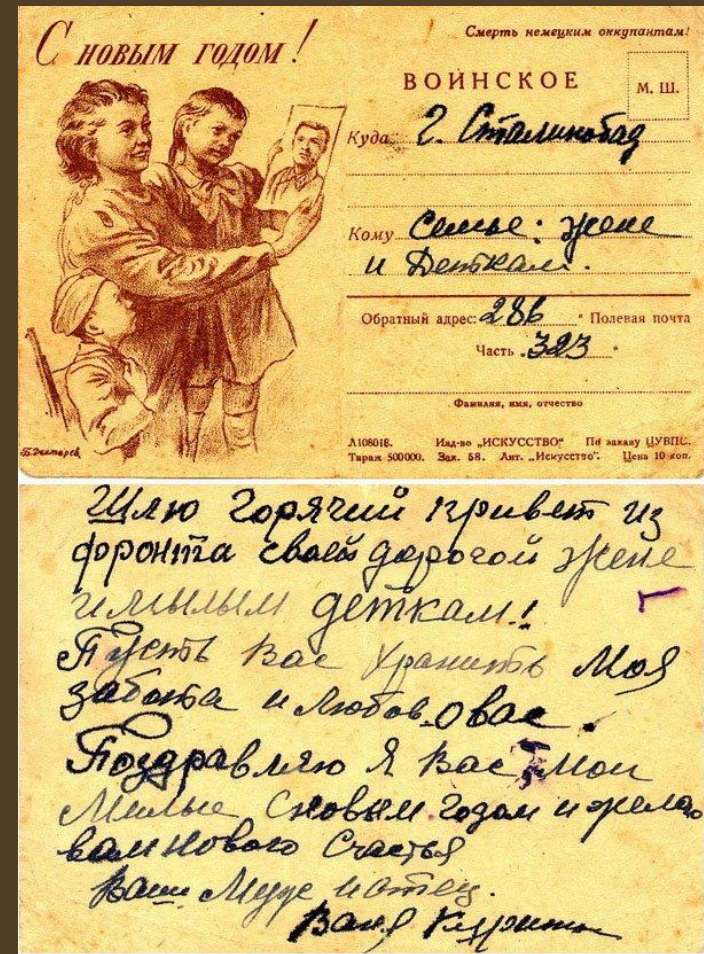 С новым годом!
Смерть немецким оккупантам!
ВОИНСКОЕ
М. Ш.
Куда г. Сталинабад
Кому Семье: жене
и Деткам.
Обратный адрес: 286 Полевая почта
Часть 323
Фамилия, имя, отчество
Л108018. Изд-во „ИСКУССТВО“ По заказу ЦУВПС.
Тираж 500000. Зак. 58. Лит. „Искусство“. Цена 10 коп.
Б. Дехтерев
Шлю горячий привет из
фронта своей дорогой жене
и милым деткам!
Пусть вас хранить моя
забота и любов о вас.
Поздравляю я вас мои
милые с новым годом и желаю
вам нового счастья
Ваш муж и отец.
Ваня